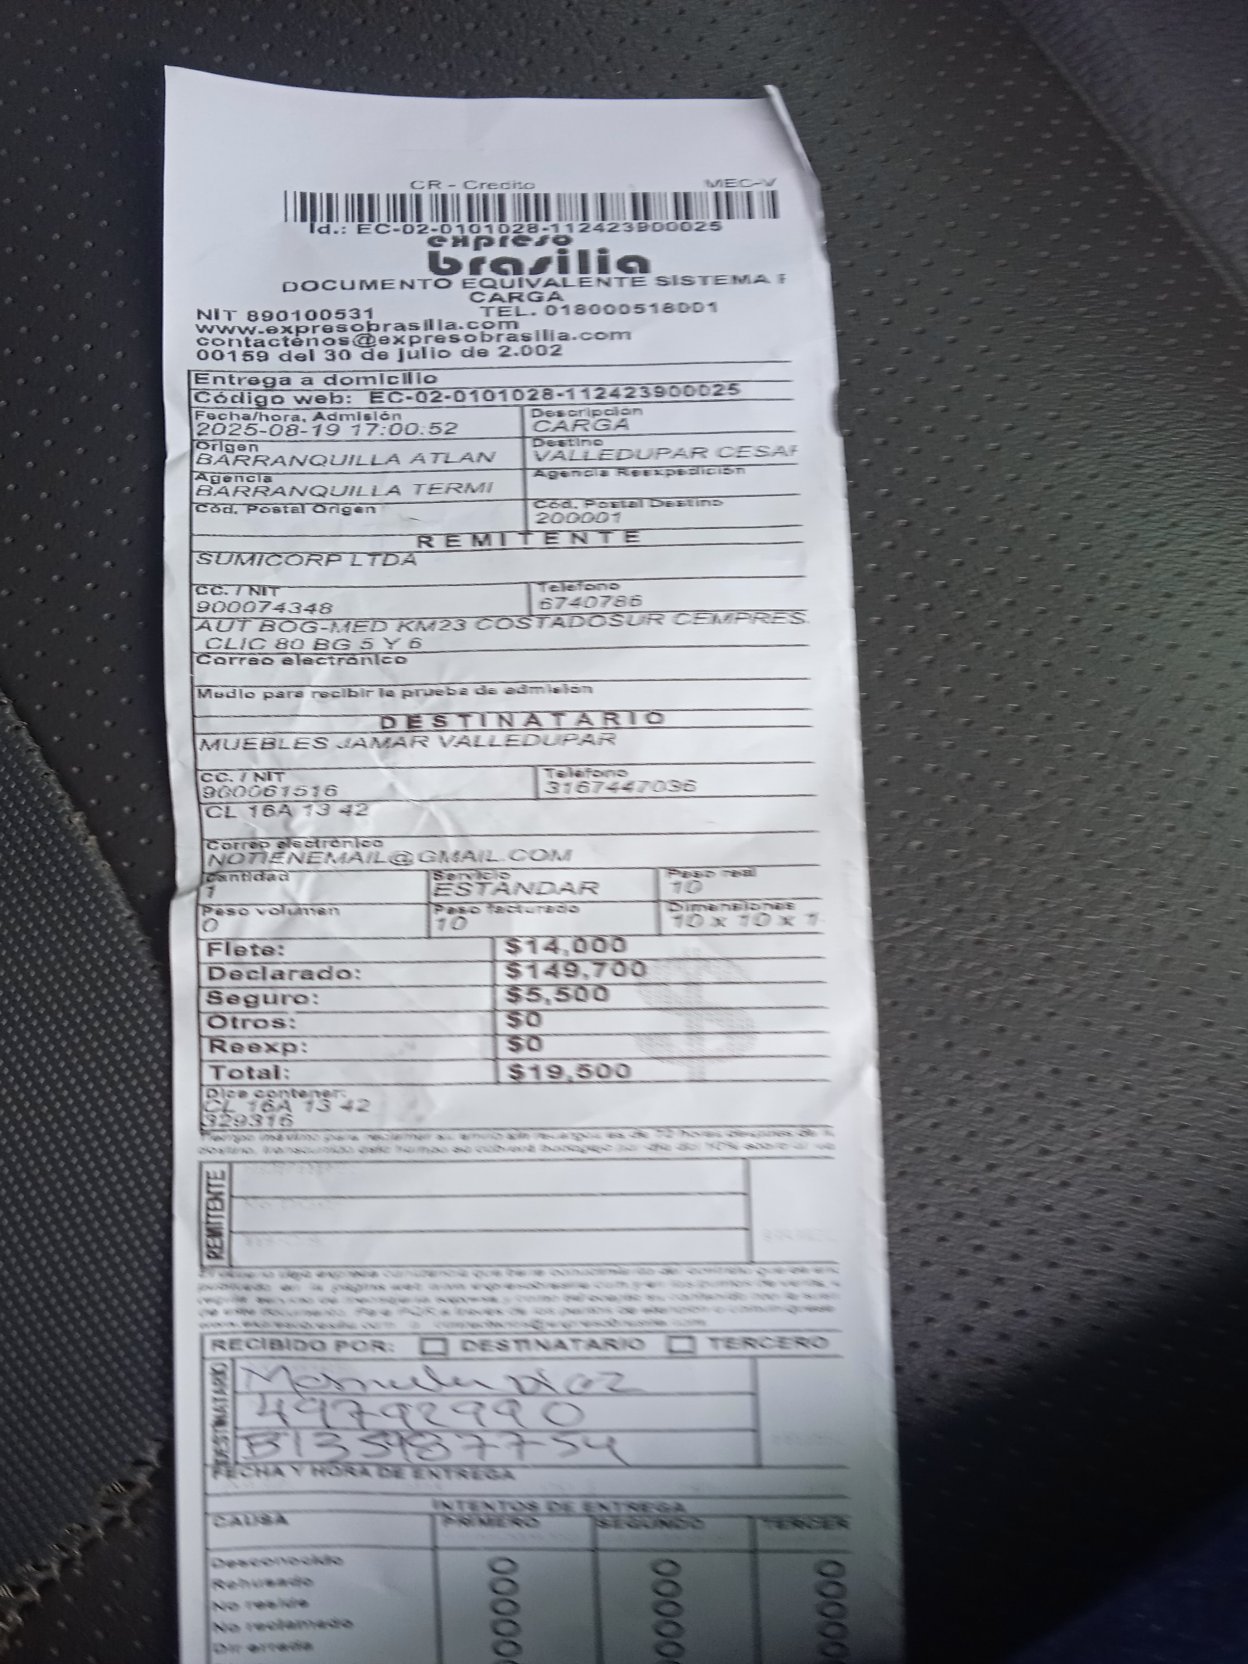 CR - Credito MEC-V
Id.: EC-02-0101028-112423900025
expreso
brasilia
DOCUMENTO EQUIVALENTE SISTEMA
CARGA
NIT 890100531 TEL. 018000518001
www.expresobrasilia.com
contactenos@expresobrasilia.com
00159 del 30 de julio de 2.002
Entrega a domicilio
Código web: EC-02-0101028-112423900025
Fecha/hora, Admisión Descripción
2025-08-19 17:00:52 CARGA
Origen Destino
BARRANQUILLA ATLAN VALLEDUPAR CESAR
Agencia Agencia Reexpedición
BARRANQUILLA TERMI
Cód. Postal Origen Cód. Postal Destino
200001
REMITENTE
SUMICORP LTDA
CC. / NIT Telefono
900074348 6740786
AUT BOG-MED KM23 COSTADOSUR CEMPRES
CLIC 80 BG 5 Y 6
Correo electrónico
Medio para recibir la prueba de admisión
DESTINATARIO
MUEBLES JAMAR VALLEDUPAR
CC. / NIT Telefono
900061516 3167447036
CL 16A 13 42
Correo electrónico
NOTIENEMAIL@GMAIL.COM
Cantidad Servicio Peso real
1 ESTANDAR 10
Peso volumen Peso facturado Dimensiones
0 10 10 x 10 x 1
Flete: $14,000
Declarado: $149,700
Seguro: $5,500
Otros: $0
Reexp: $0
Total: $19,500
Dice contener:
CL 16A 13 42
329316
Tiempo máximo para reclamar su envío sin recargos es de 72 horas después de
REMITENTE
RECIBIDO POR: DESTINATARIO TERCERO
DESTINATARIO
Diaz
49792990
FECHA Y HORA DE ENTREGA
INTENTOS DE ENTREGA
CAUSA PRIMERO SEGUNDO TERCER
Desconocido
Rehusado
No reside
No reclamado
Dir errada